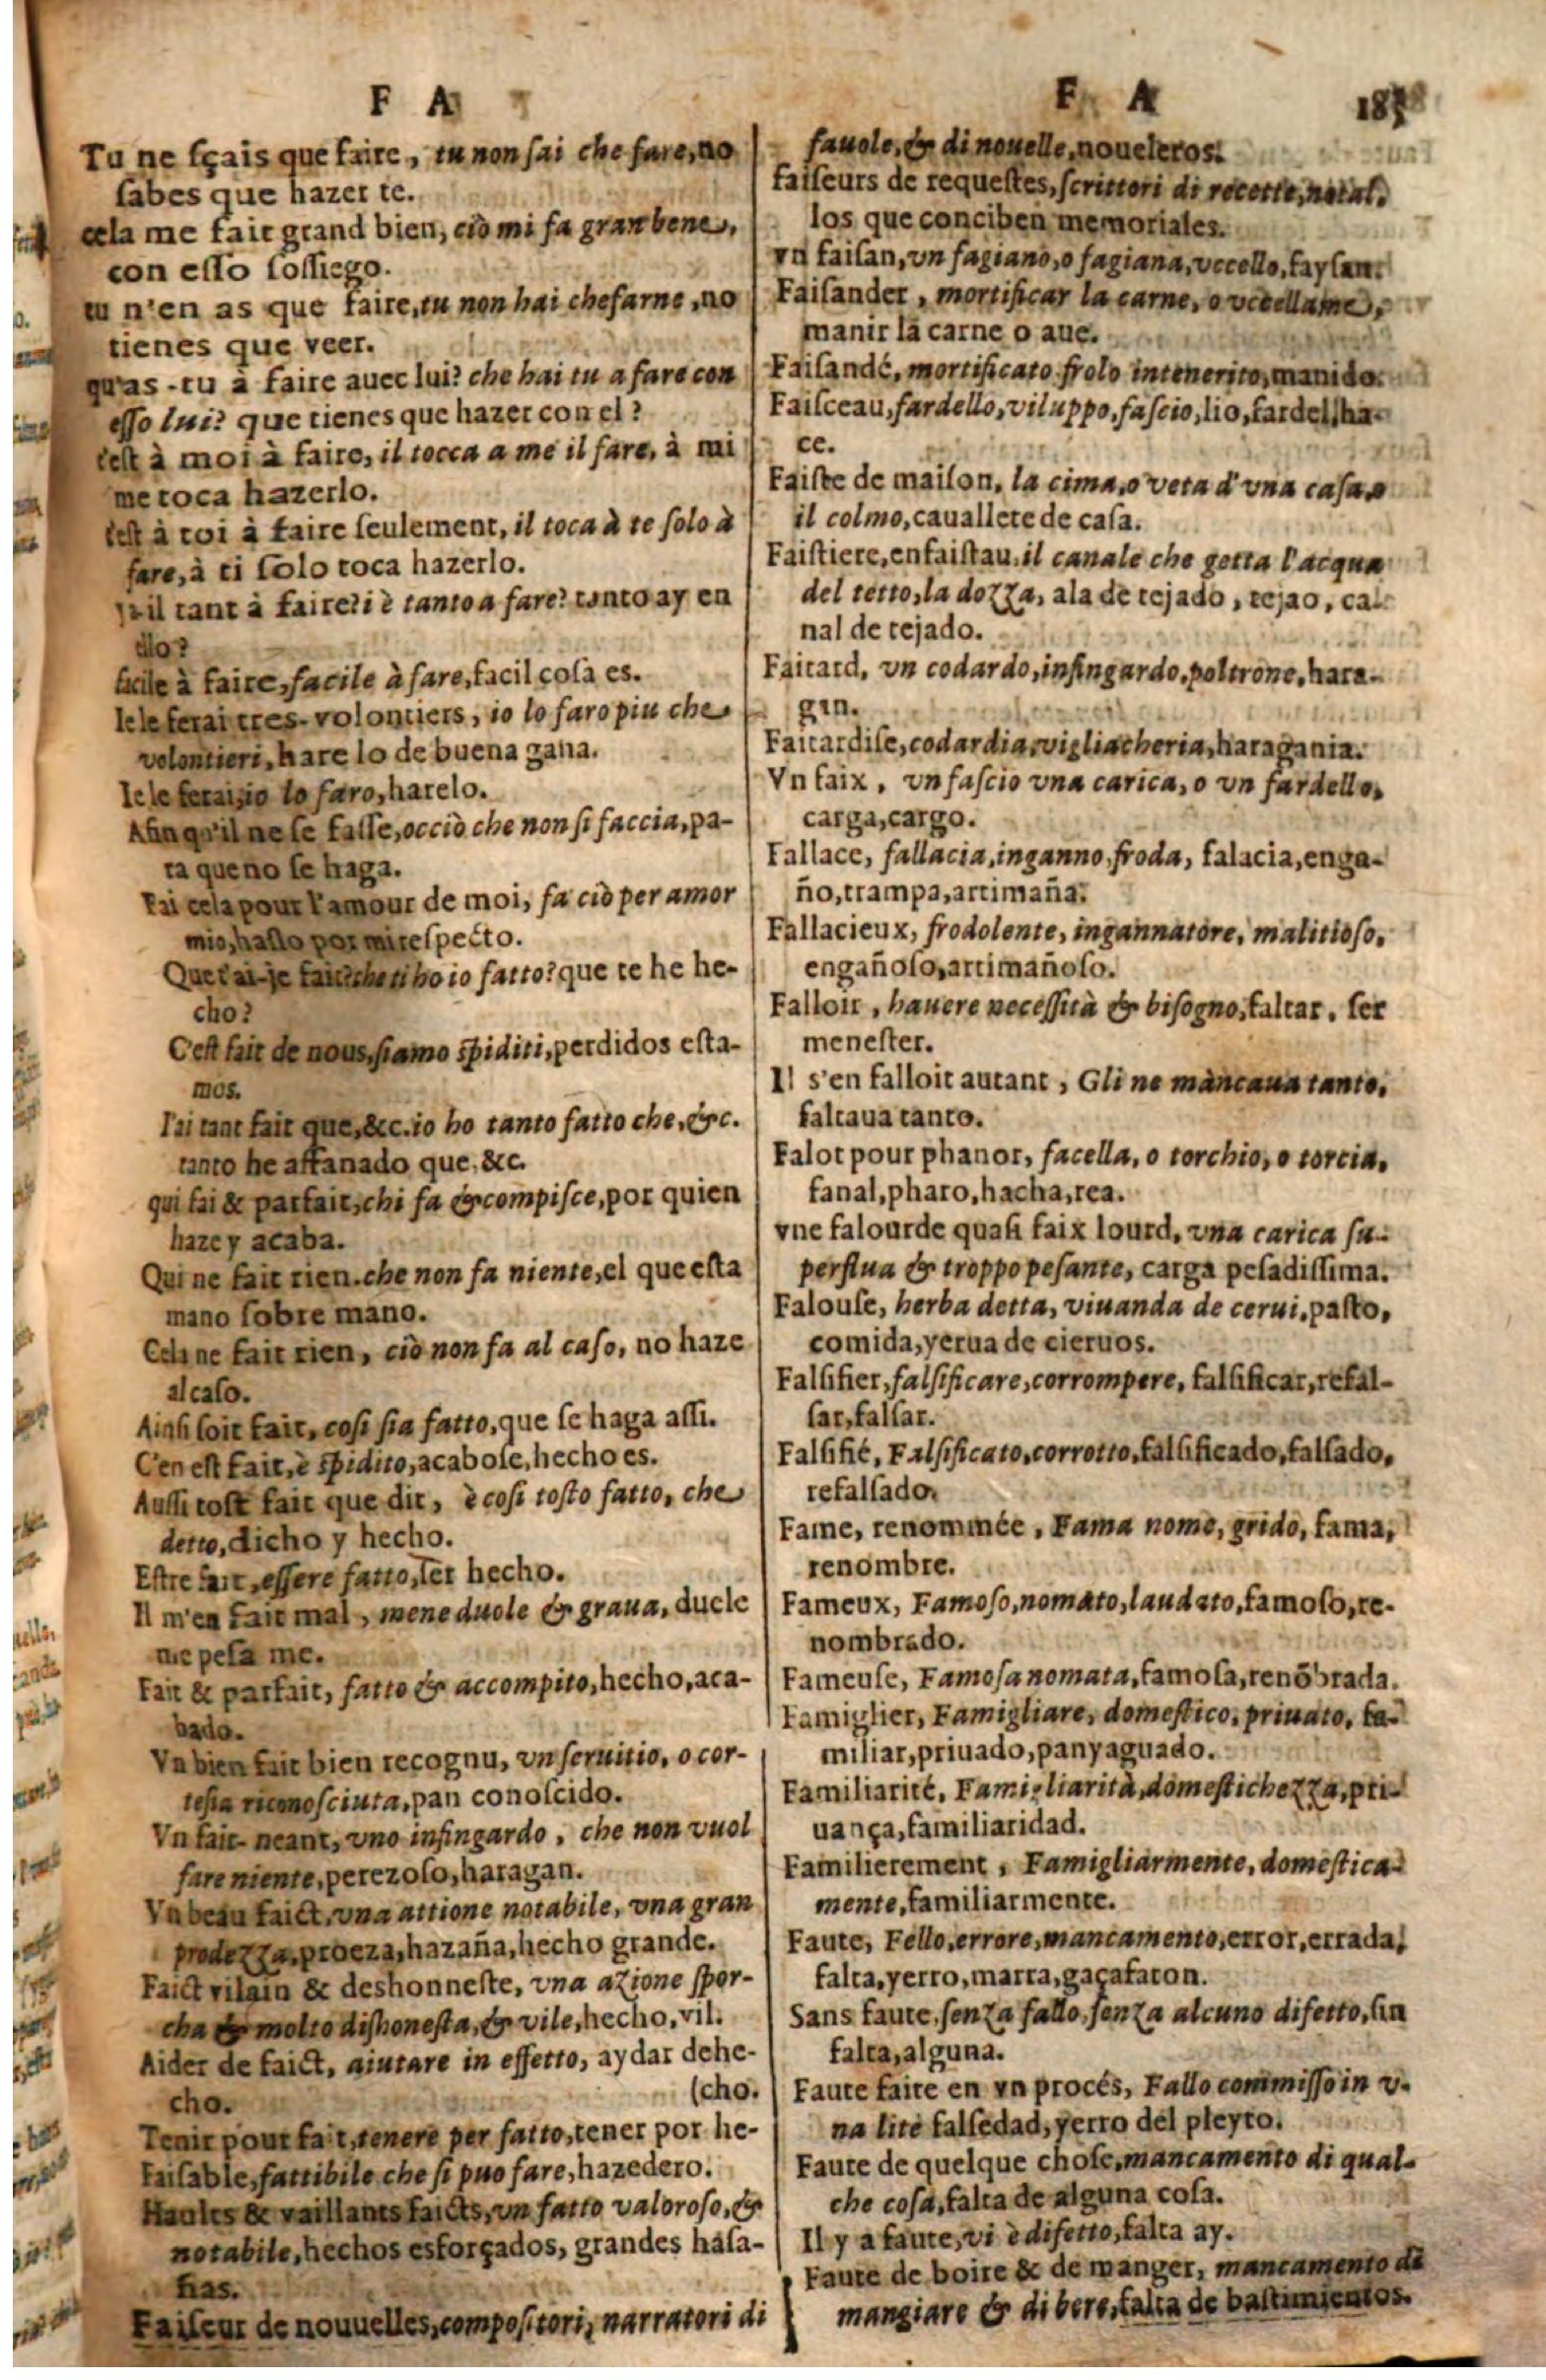 F A
Tu ne sçais que faire, tu non sai che fare, no
sabes que hazer te.
cela me fait grand bien, ciò mi fa gran bene,
con esso sossiego.
tu n'en as que faire, tu non hai che farne, no
tienes que veer.
qu'as-tu à faire auec lui? che hai tu a fare con
esso lui? que tienes que hazer con el?
c'est à moi à faire, il tocca a me il fare, à mi
me toca hazerlo.
c'est à toi à faire seulement, il toca à te solo à
fare, à ti solo toca hazerlo.
il tant à faire? i è tanto a fare? tanto ay en
ello?
facile à faire, facile à fare, facil cosa es.
Ie le ferai tres-volontiers, io lo faro piu che
volontieri, hare lo de buena gana.
Ie le ferai, io lo faro, harelo.
Afin qu'il ne se fasse, occiò che non si faccia, pa-
ra que no se haga.
Fai cela pour l'amour de moi, fa ciò per amor
mio, hazlo por mi respecto.
Que t'ai-je fait? che ti ho io fatto? que te he he-
cho?
C'est fait de nous, siamo spiditi, perdidos esta-
mos.
I'ai tant fait que, &c. io ho tanto fatto che, &c.
tanto he affanado que, &c.
qui fai & parfait, chi fa & compisce, por quien
haze y acaba.
Qui ne fait rien. che non fa niente, el que esta
mano sobre mano.
Cela ne fait rien, ciò non fa al caso, no haze
al caso.
Ainsi soit fait, cosi sia fatto, que se haga assi.
C'en est fait, è spidito, acabose, hecho es.
Aussi tost fait que dit, è cosi tosto fatto, che
detto, dicho y hecho.
Estre fait, essere fatto, ser hecho.
Il m'en fait mal, mene duole & graua, duele
me pesa me.
Fait & parfait, fatto & accompito, hecho, aca-
bado.
Vn bien fait bien recognu, vn seruitio, o cor-
tesia riconosciuta, pan conoscido.
Vn fait-neant, vno infingardo, che non vuol
fare niente, perezoso, haragan.
Vn beau faict, vna attione notabile, vna gran
prodezza, proeza, hazaña, hecho grande.
Faict vilain & deshonneste, vna azione spor-
cha & molto dishonesta, & vile, hecho, vil.
Aider de faict, aiutare in effetto, aydar dehe-
cho. (cho.
Tenir pour fait, tenere per fatto, tener por he-
Faisable, fattibile che si puo fare, hazedero.
Haultes & vaillants faicts, vn fatto valoroso, &
notabile, hechos esforçados, grandes hasa-
ñas.
Faiseur de nouuelles, compositori, narratori di
F A 187
fauole, & di nouelle, noueleros.
faiseurs de requestes, scrittori di recette, notai.
los que conciben memoriales.
vn faisan, vn fagiano, o fagiana, vccello, faysan.
Faisander, mortificar la carne, o vccellame,
manir la carne o aue.
Faisandé, mortificato frolo intenerito, manido.
Faisceau, fardello, viluppo, fascio, lio, fardel, ha-
ce.
Faiste de maison, la cima, o veta d'vna casa, o
il colmo, cauallete de casa.
Faistiere, enfaistau, il canale che getta l'acqua
del tetto, la dozza, ala de tejado, tejao, ca-
nal de tejado.
Faitard, vn codardo, infingardo, poltrone, hara-
gan.
Faitardise, codardia, vigliacheria, haragania.
Vn faix, vn fascio vna carica, o vn fardello,
carga, cargo.
Fallace, fallacia, inganno, froda, falacia, enga-
ño, trampa, artimaña.
Fallacieux, frodolente, ingannatore, malitioso,
engañoso, artimañoso.
Falloir, hauere necessità & bisogno, faltar, ser
menester.
Il s'en falloit autant, Gli ne mancaua tanto,
faltaua tanto.
Falot pour phanot, facella, o torchio, o torcia,
fanal, pharo, hacha, tea.
vne falourde quasi faix lourd, vna carica su-
perflua & troppo pesante, carga pesadissima.
Falouse, herba detta, viuanda de cerui, pasto,
comida, yerua de cieruos.
Falsifier, falsificare, corrompere, falsificar, refal-
sar, falsar.
Falsifié, Falsificato, corrotto, falsificado, falsado,
refalsado.
Fame, renommée, Fama nome, grido, fama,
renombre.
Fameux, Famoso, nomato, laudato, famoso, re-
nombrado.
Fameuse, Famosa nomata, famosa, renõbrada.
Famiglier, Famigliare, domestico, priuato, fa-
miliar, priuado, panyaguado.
Familiarité, Famigliarità, domestichezza, pri-
uança, familiaridad.
Familierement, Famigliarmente, domestica-
mente, familiarmente.
Faute, Fello, errore, mancamento, error, errada,
falta, yerro, marra, gaçafaton.
Sans faute, senza fallo, senza alcuno difetto, sin
falta, alguna.
Faute faite en vn procés, Fallo commisso in v-
na lite falsedad, yerro del pleyto.
Faute de quelque chose, mancamento di qual-
che cosa, falta de alguna cosa.
Il y a faute, vi è difetto, falta ay.
Faute de boire & de manger, mancamento di
mangiare & di bere, falta de bastimientos.